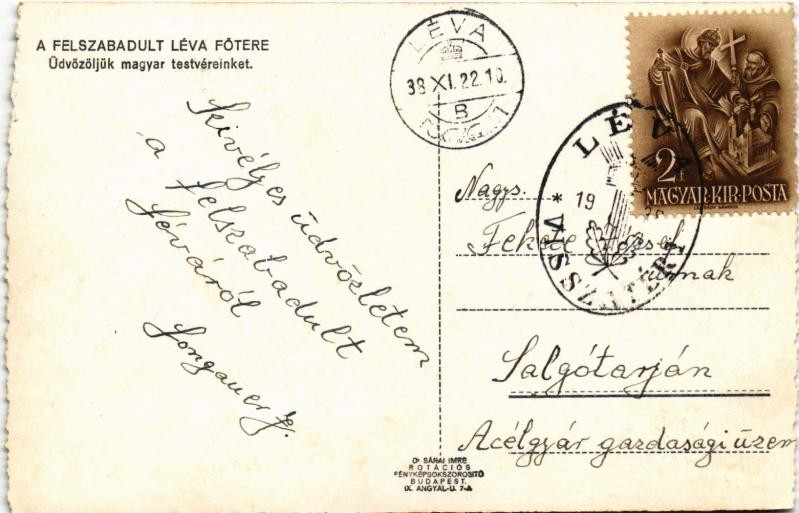 A FELSZABADULT LÉVA FŐTERE
Üdvözöljük magyar testvéreinket.
Szivélyes üdvözletem
a felszabadult
Léváról
LÉVA
38 XI. 22. 10.
B
2f
MAGYAR·KIR·POSTA
LÉVA
* VISSZATÉRT
19
Nagys.
Fekete József
úrnak
Salgótarján
Acélgyár gazdasági üzem
Dr SÁRAI IMRE
ROTÁCIÓS
FÉNYKÉPSOKSZOROSÍTÓ
BUDAPEST,
IX. ANGYAL-U. 7-A